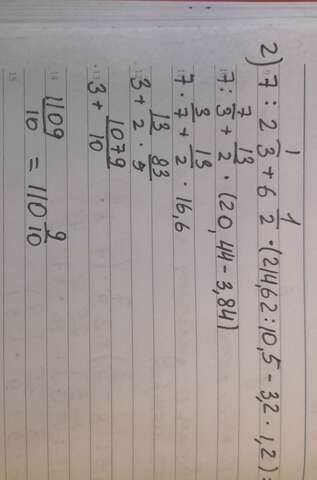 2) 7 : 2 1/3 + 6 1/2 · (214,62 : 10,5 - 3,2 · 1,2) =
7 : 7/3 + 13/2 · (20,44 - 3,84)
7 · 3/7 + 13/2 · 16,6
3 + 13/2 · 83/5
3 + 1079/10
1109/10 = 110 9/10